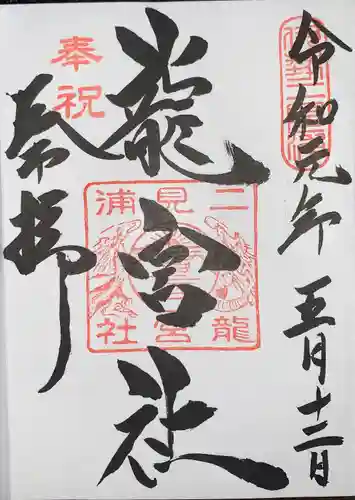 令和元年 五月十三日
龍宮社
奉祝
奉拝
二見浦
龍宮社